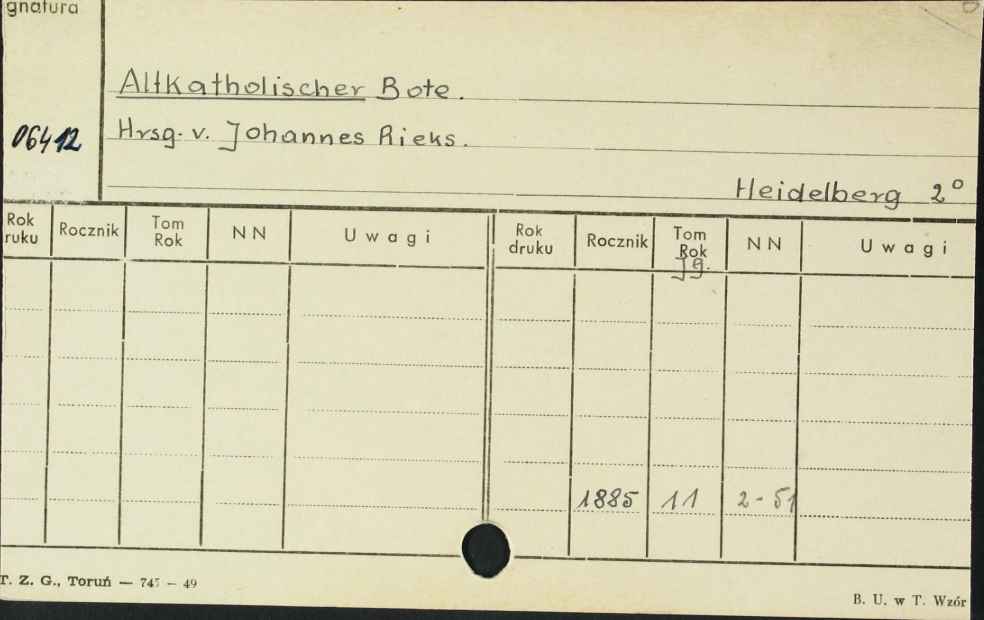 gnatura
Altkatholischer Bote.
06412
Hrsg. v. Johannes Rieks.
Heidelberg 2°
Rok
ruku
Rocznik
Tom
Rok
NN
Uwagi
Rok
druku
Rocznik
Tom
Rok
Jg.
NN
Uwagi
1885 11 2-51
T. Z. G., Toruń — 745 — 49
B. U. w T. Wzór